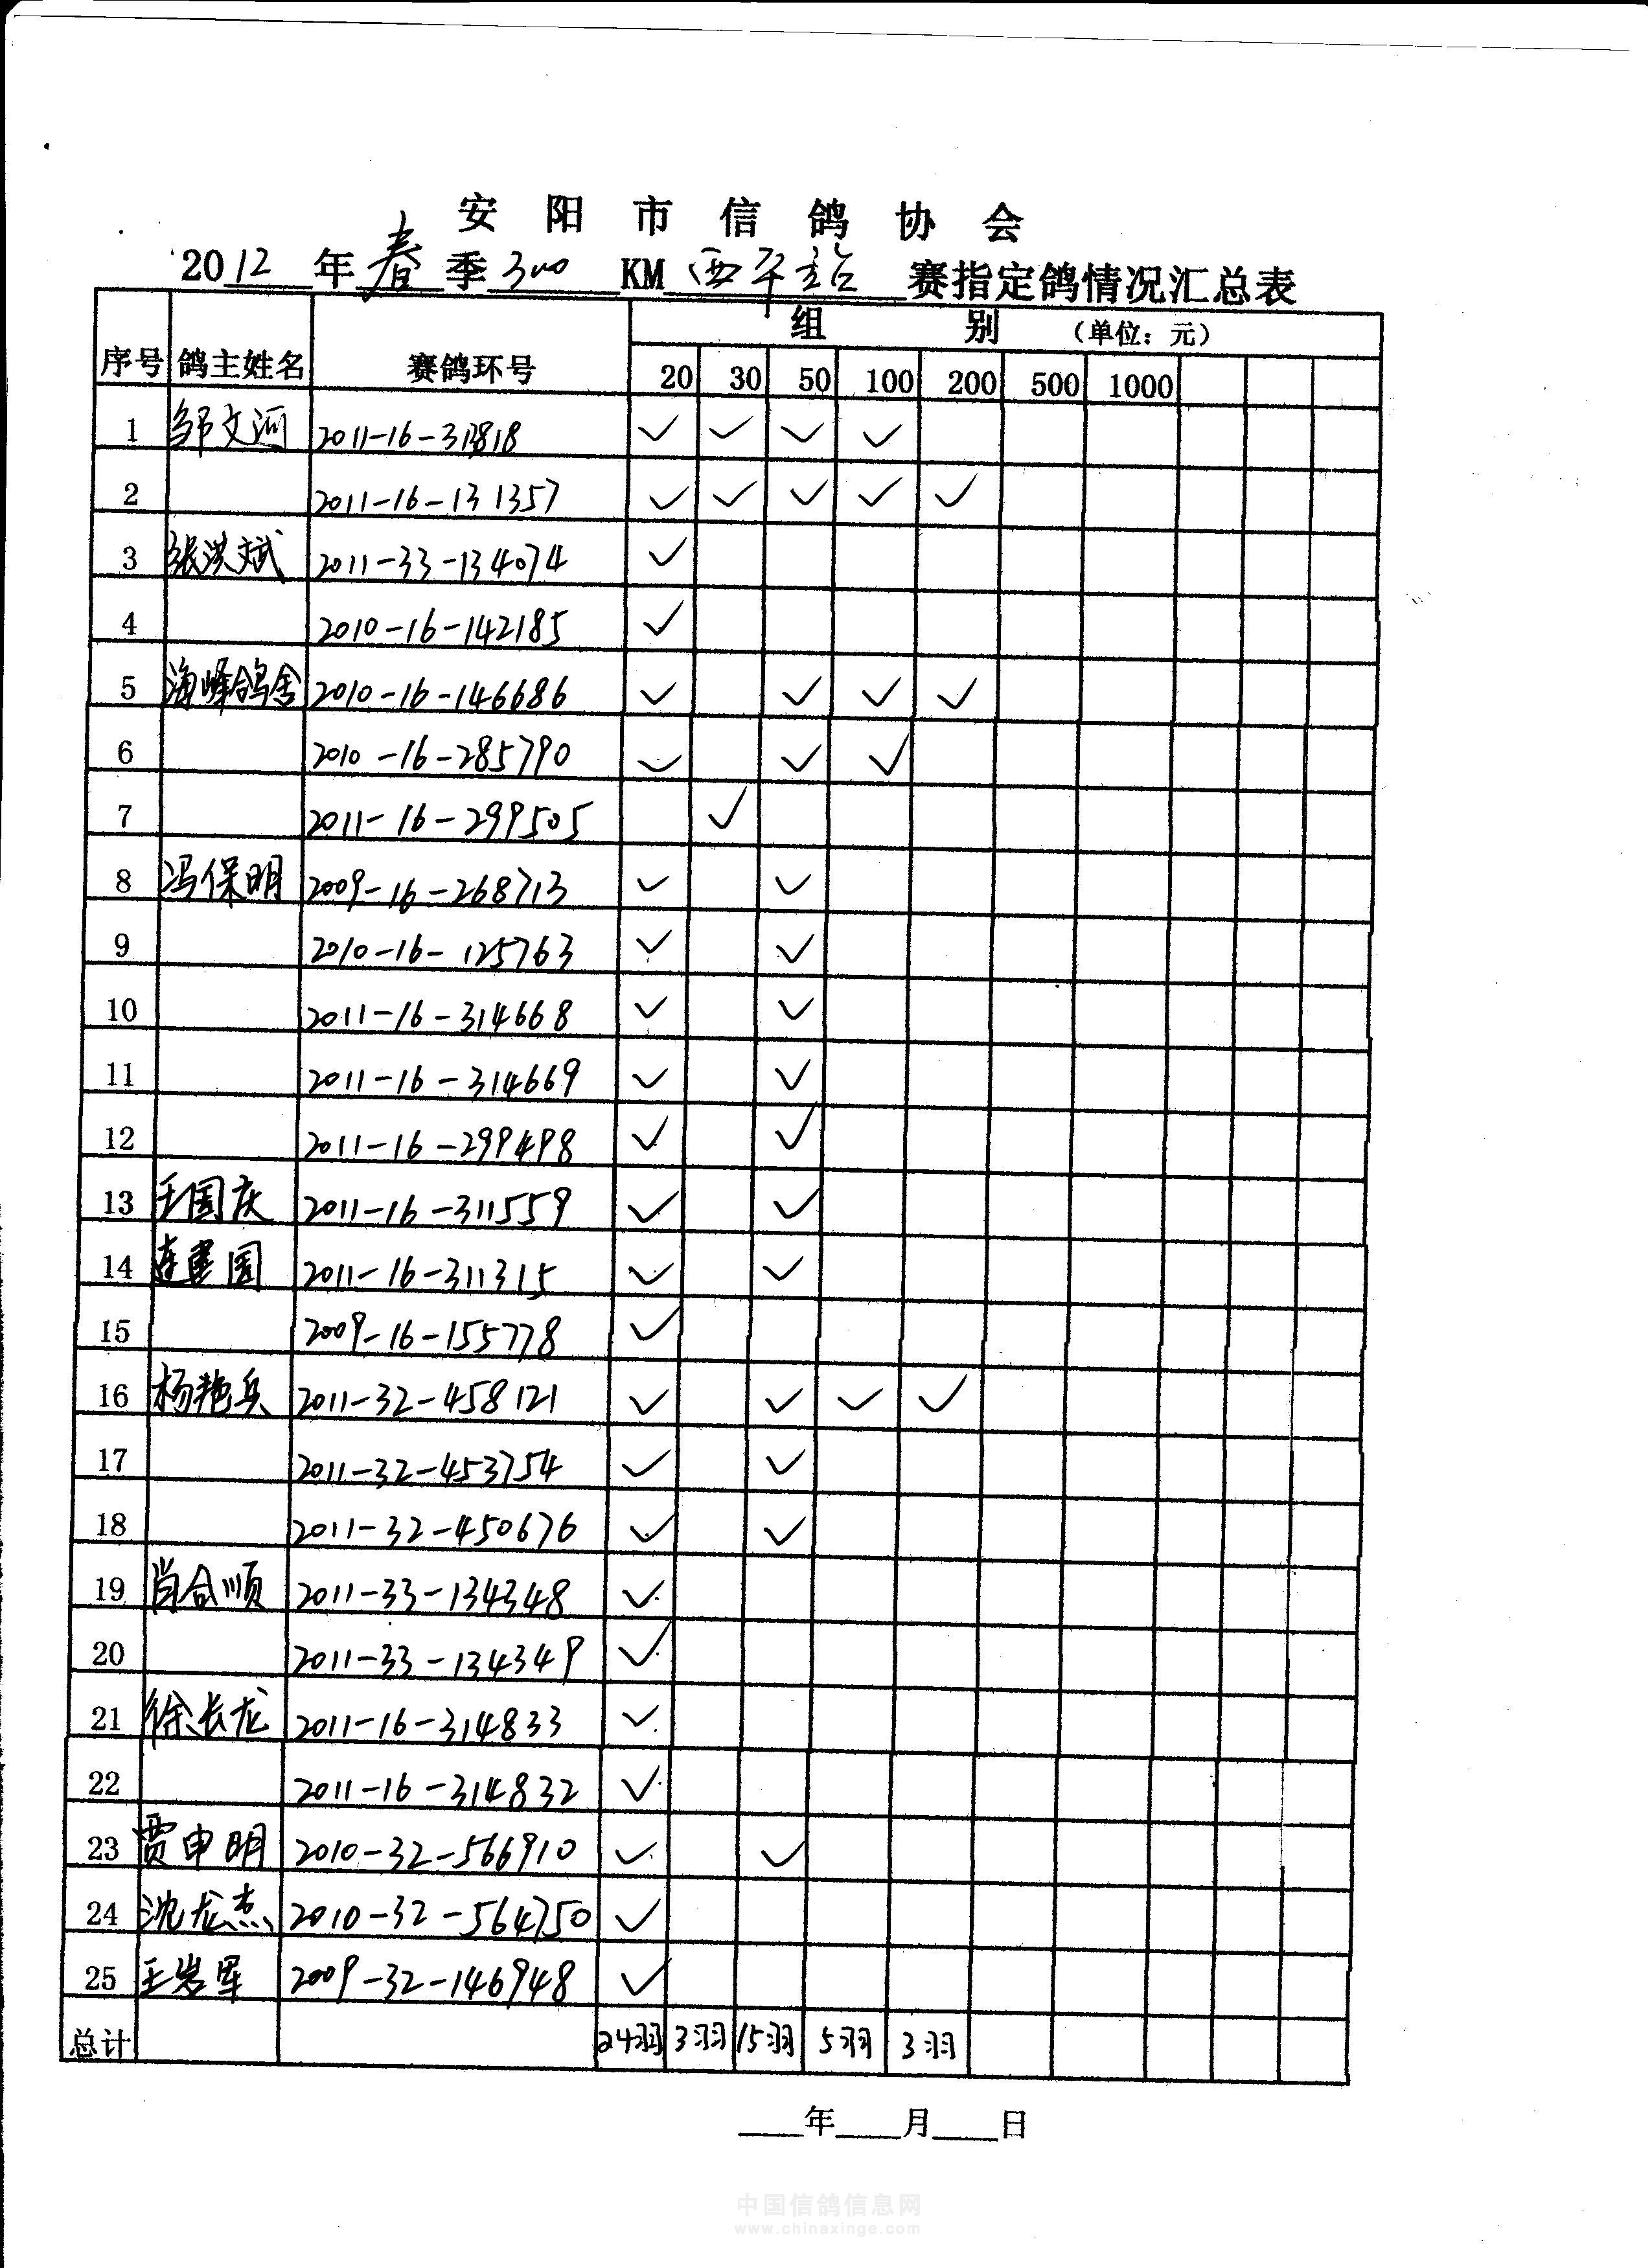 安阳市信鸽协会
2012年春季300KM西平站赛指定鸽情况汇总表
序号 鸽主姓名 赛鸽环号 组别 (单位：元)
20 30 50 100 200 500 1000
1 邹文河 2011-16-313818 ✓ ✓ ✓ ✓
2 2011-16-131357 ✓ ✓ ✓ ✓ ✓
3 张洪斌 2011-33-134074 ✓
4 2010-16-142185 ✓
5 海峰鸽舍 2010-16-146686 ✓ ✓ ✓ ✓
6 2010-16-285790 ✓ ✓ ✓
7 2011-16-299505 ✓
8 冯保明 2009-16-268713 ✓ ✓
9 2010-16-125763 ✓ ✓
10 2011-16-314668 ✓ ✓
11 2011-16-314669 ✓ ✓
12 2011-16-299498 ✓ ✓
13 王国庆 2011-16-311559 ✓ ✓
14 连建国 2011-16-311315 ✓ ✓
15 2009-16-155778 ✓
16 杨艳兵 2011-32-458121 ✓ ✓ ✓ ✓
17 2011-32-453754 ✓ ✓
18 2011-32-450676 ✓ ✓
19 肖合顺 2011-33-134348 ✓
20 2011-33-134349 ✓
21 徐长龙 2011-16-314833 ✓
22 2011-16-314832 ✓
23 贾申明 2010-32-566910 ✓ ✓
24 沈龙杰 2010-32-564750 ✓
25 王岩军 2009-32-146948 ✓
总计 24羽 3羽 15羽 5羽 3羽
年 月 日
中国信鸽信息网
www.chinaxinge.com